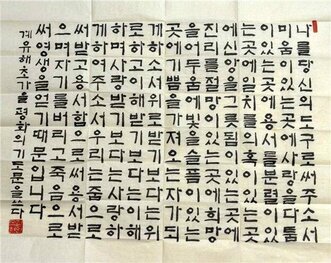 나를당신의도구로써주소서
미움이있는곳에사랑을다툼
이있는곳에용서를분열이
있는곳에일치를의혹이있는곳
에신앙을그릇됨이있는곳에
진리를절망이있는곳에희망
을어두움에빛을슬픔이있는
곳에기쁨을가져오는자되
게하소서위로받기보다는위
로하고이해받기보다는이해
하며사랑받기보다는사랑하
게하여주소서우리는줌으로
써받고용서함으로써용서받
으며자기를버리고죽음으로
써영생을얻기때문입니다
계유해초가을평화의기도문을쓰다